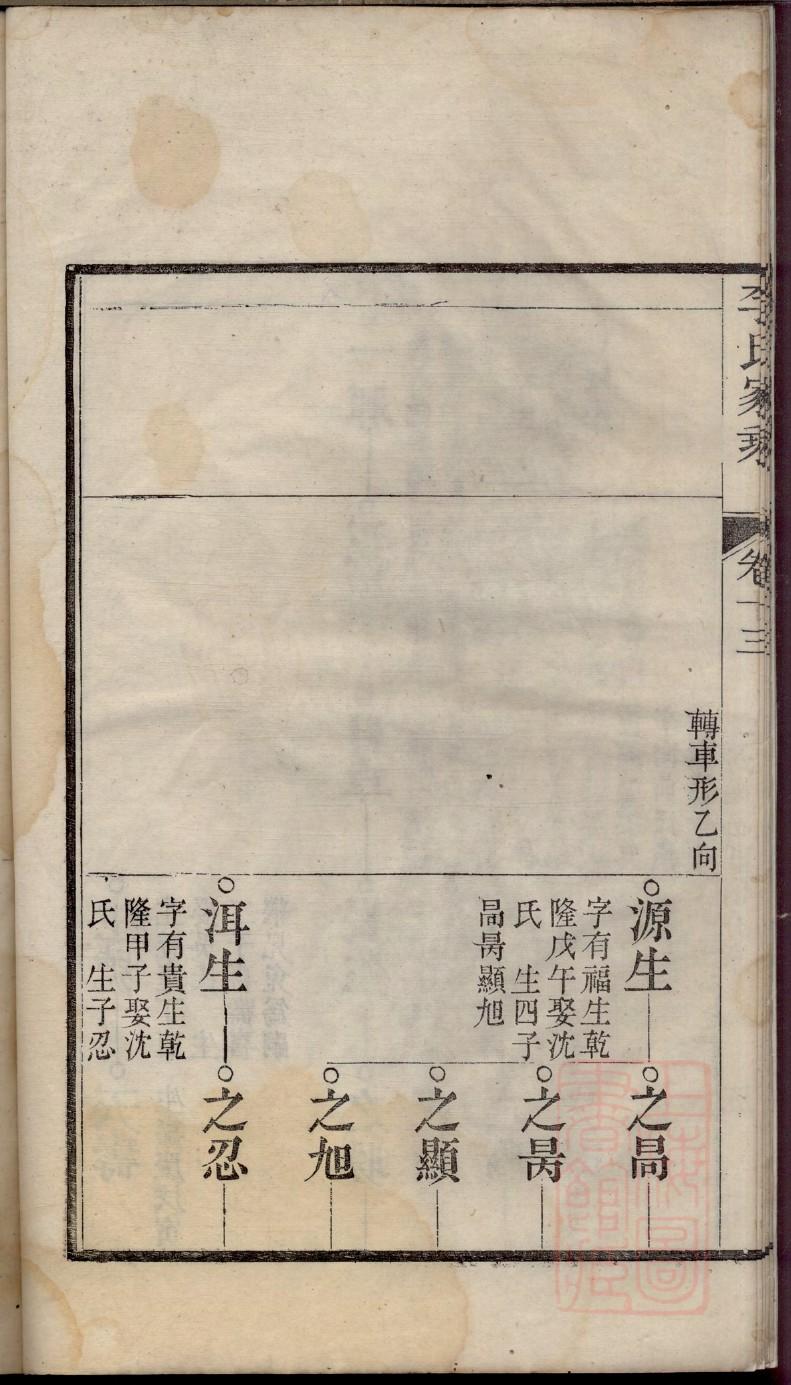 李氏家乘
卷十三
轉車形乙向
源生
字有福生乾
隆戊午娶沈
氏 生四子
昺顯旭
之
之昺
之顯
之旭
洱生
字有貴生乾
隆甲子娶沈
氏 生子忍
之忍
上海圖書館藏